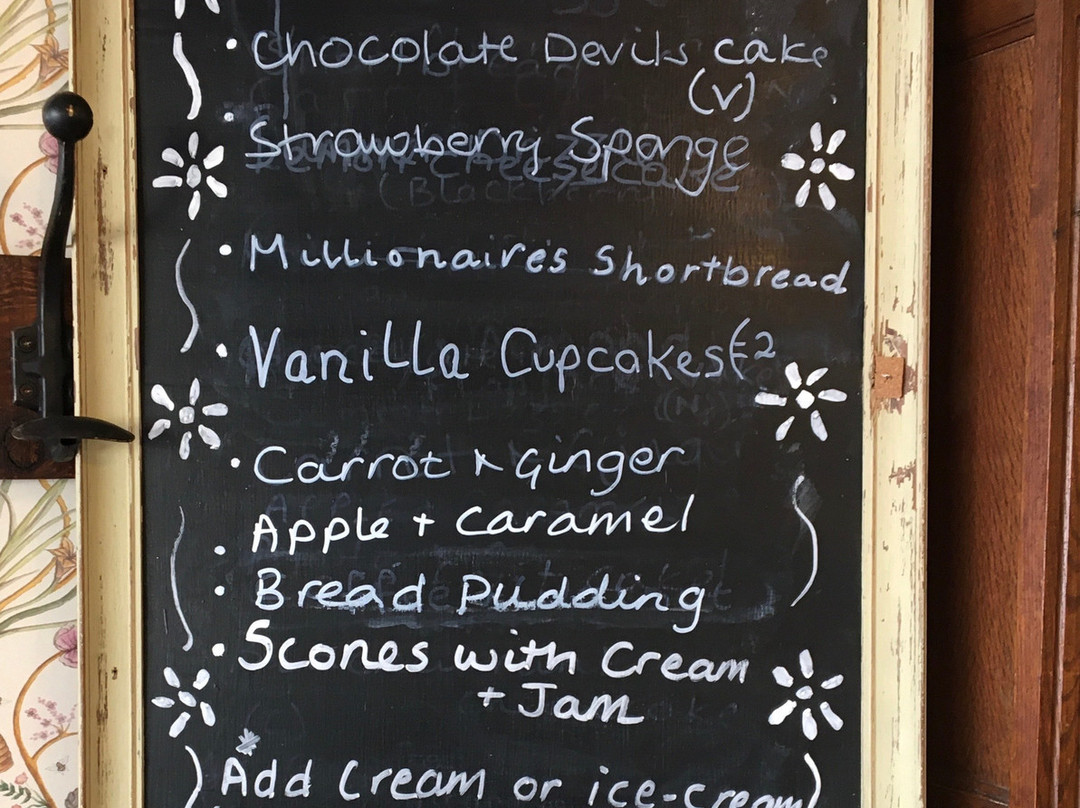 • Chocolate Devils cake
(v)
• Strawberry Sponge
• Millionaires Shortbread
• Vanilla Cupcakes £2
• Carrot & ginger
• Apple + caramel
• Bread Pudding
• Scones with Cream
+ Jam
* Add Cream or ice-cream